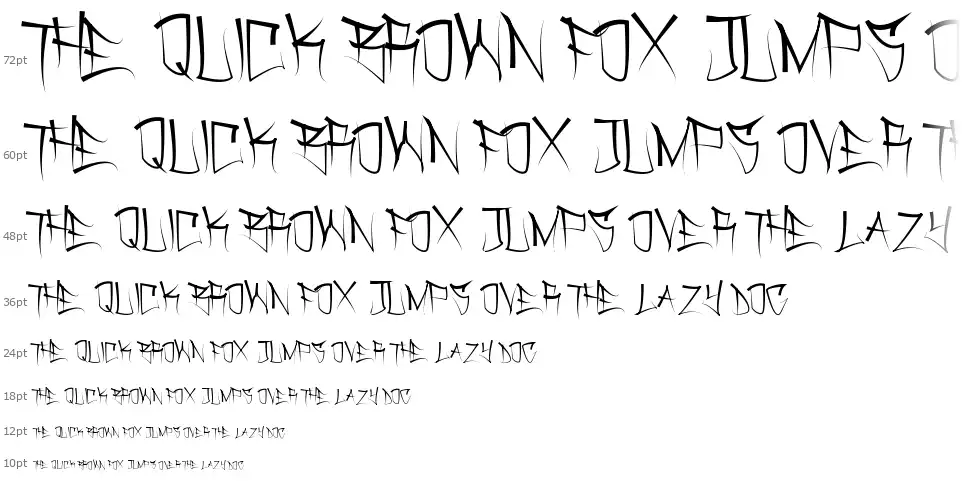 72pt THE QUICK BROWN FOX JUMPS O
60pt THE QUICK BROWN FOX JUMPS OVER T
48pt THE QUICK BROWN FOX JUMPS OVER THE LAZY
36pt THE QUICK BROWN FOX JUMPS OVER THE LAZY DOG
24pt THE QUICK BROWN FOX JUMPS OVER THE LAZY DOG
18pt THE QUICK BROWN FOX JUMPS OVER THE LAZY DOG
12pt THE QUICK BROWN FOX JUMPS OVER THE LAZY DOG
10pt THE QUICK BROWN FOX JUMPS OVER THE LAZY DOG